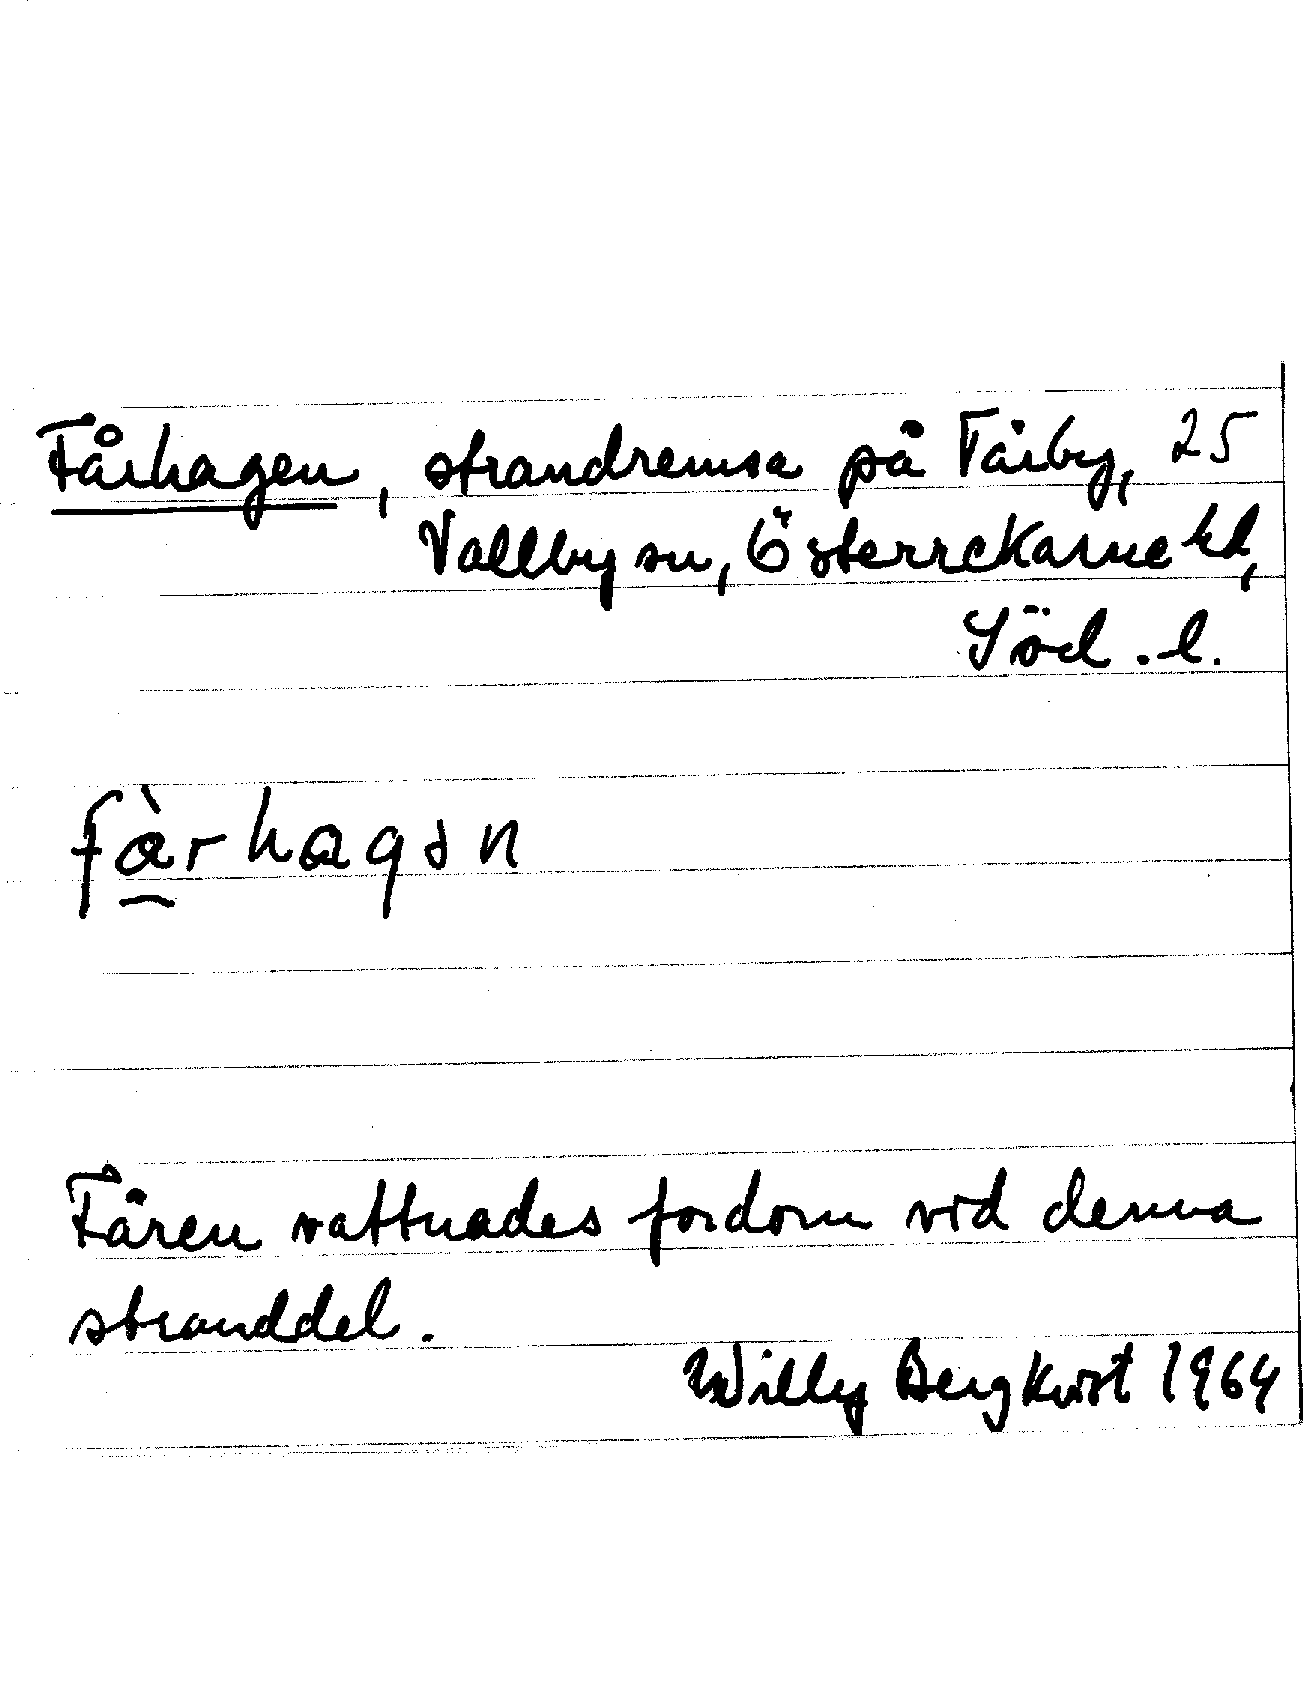 Fårhagen, strandremsa på Fårby, 25
Vallby sn, Österrekarne hd,
Söd. l.
fàrhagən
Fåren vattnades fordom vid denna
stranddel.
Willy Bergkvist 1964